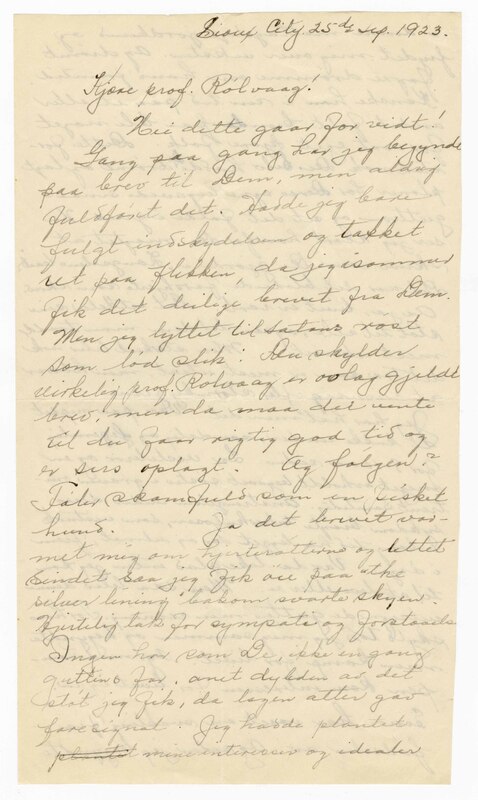 Sioux City. 25de sep. 1923.
Kjære prof. Rölvaag!
Nei dette gaar for vidt!
Gang paa gang har jeg begyndt
paa brev til Dem, men aldrig
fuldført det. Havde jeg bare
fulgt indskydelsen og takket
ret paa flekken, da jeg isommer
fik det deilige brevet fra Dem.
Men jeg lyttet til Satans røst
som lød slik: Du skylder
virkelig prof. Rölvaag er gjeld
brev, men da maa det vente
til du faar rigtig god tid og
er oplagt. Og følgen?
Føler skamfuld som en
hund. Ja det brevet var-
met mig om hjerterøtterne og lettet
sindet saa jeg fik øie paa "the
silver lining" bakom svarte skyen.
Hjertelig tak for sympati og forstaaelse
Ingen har som De, ikke en gang
guttene før, anet dybden av det
støt jeg fik, da logen atter gav
faresignal. Jeg havde plantet
plantet mine interesser og idealer